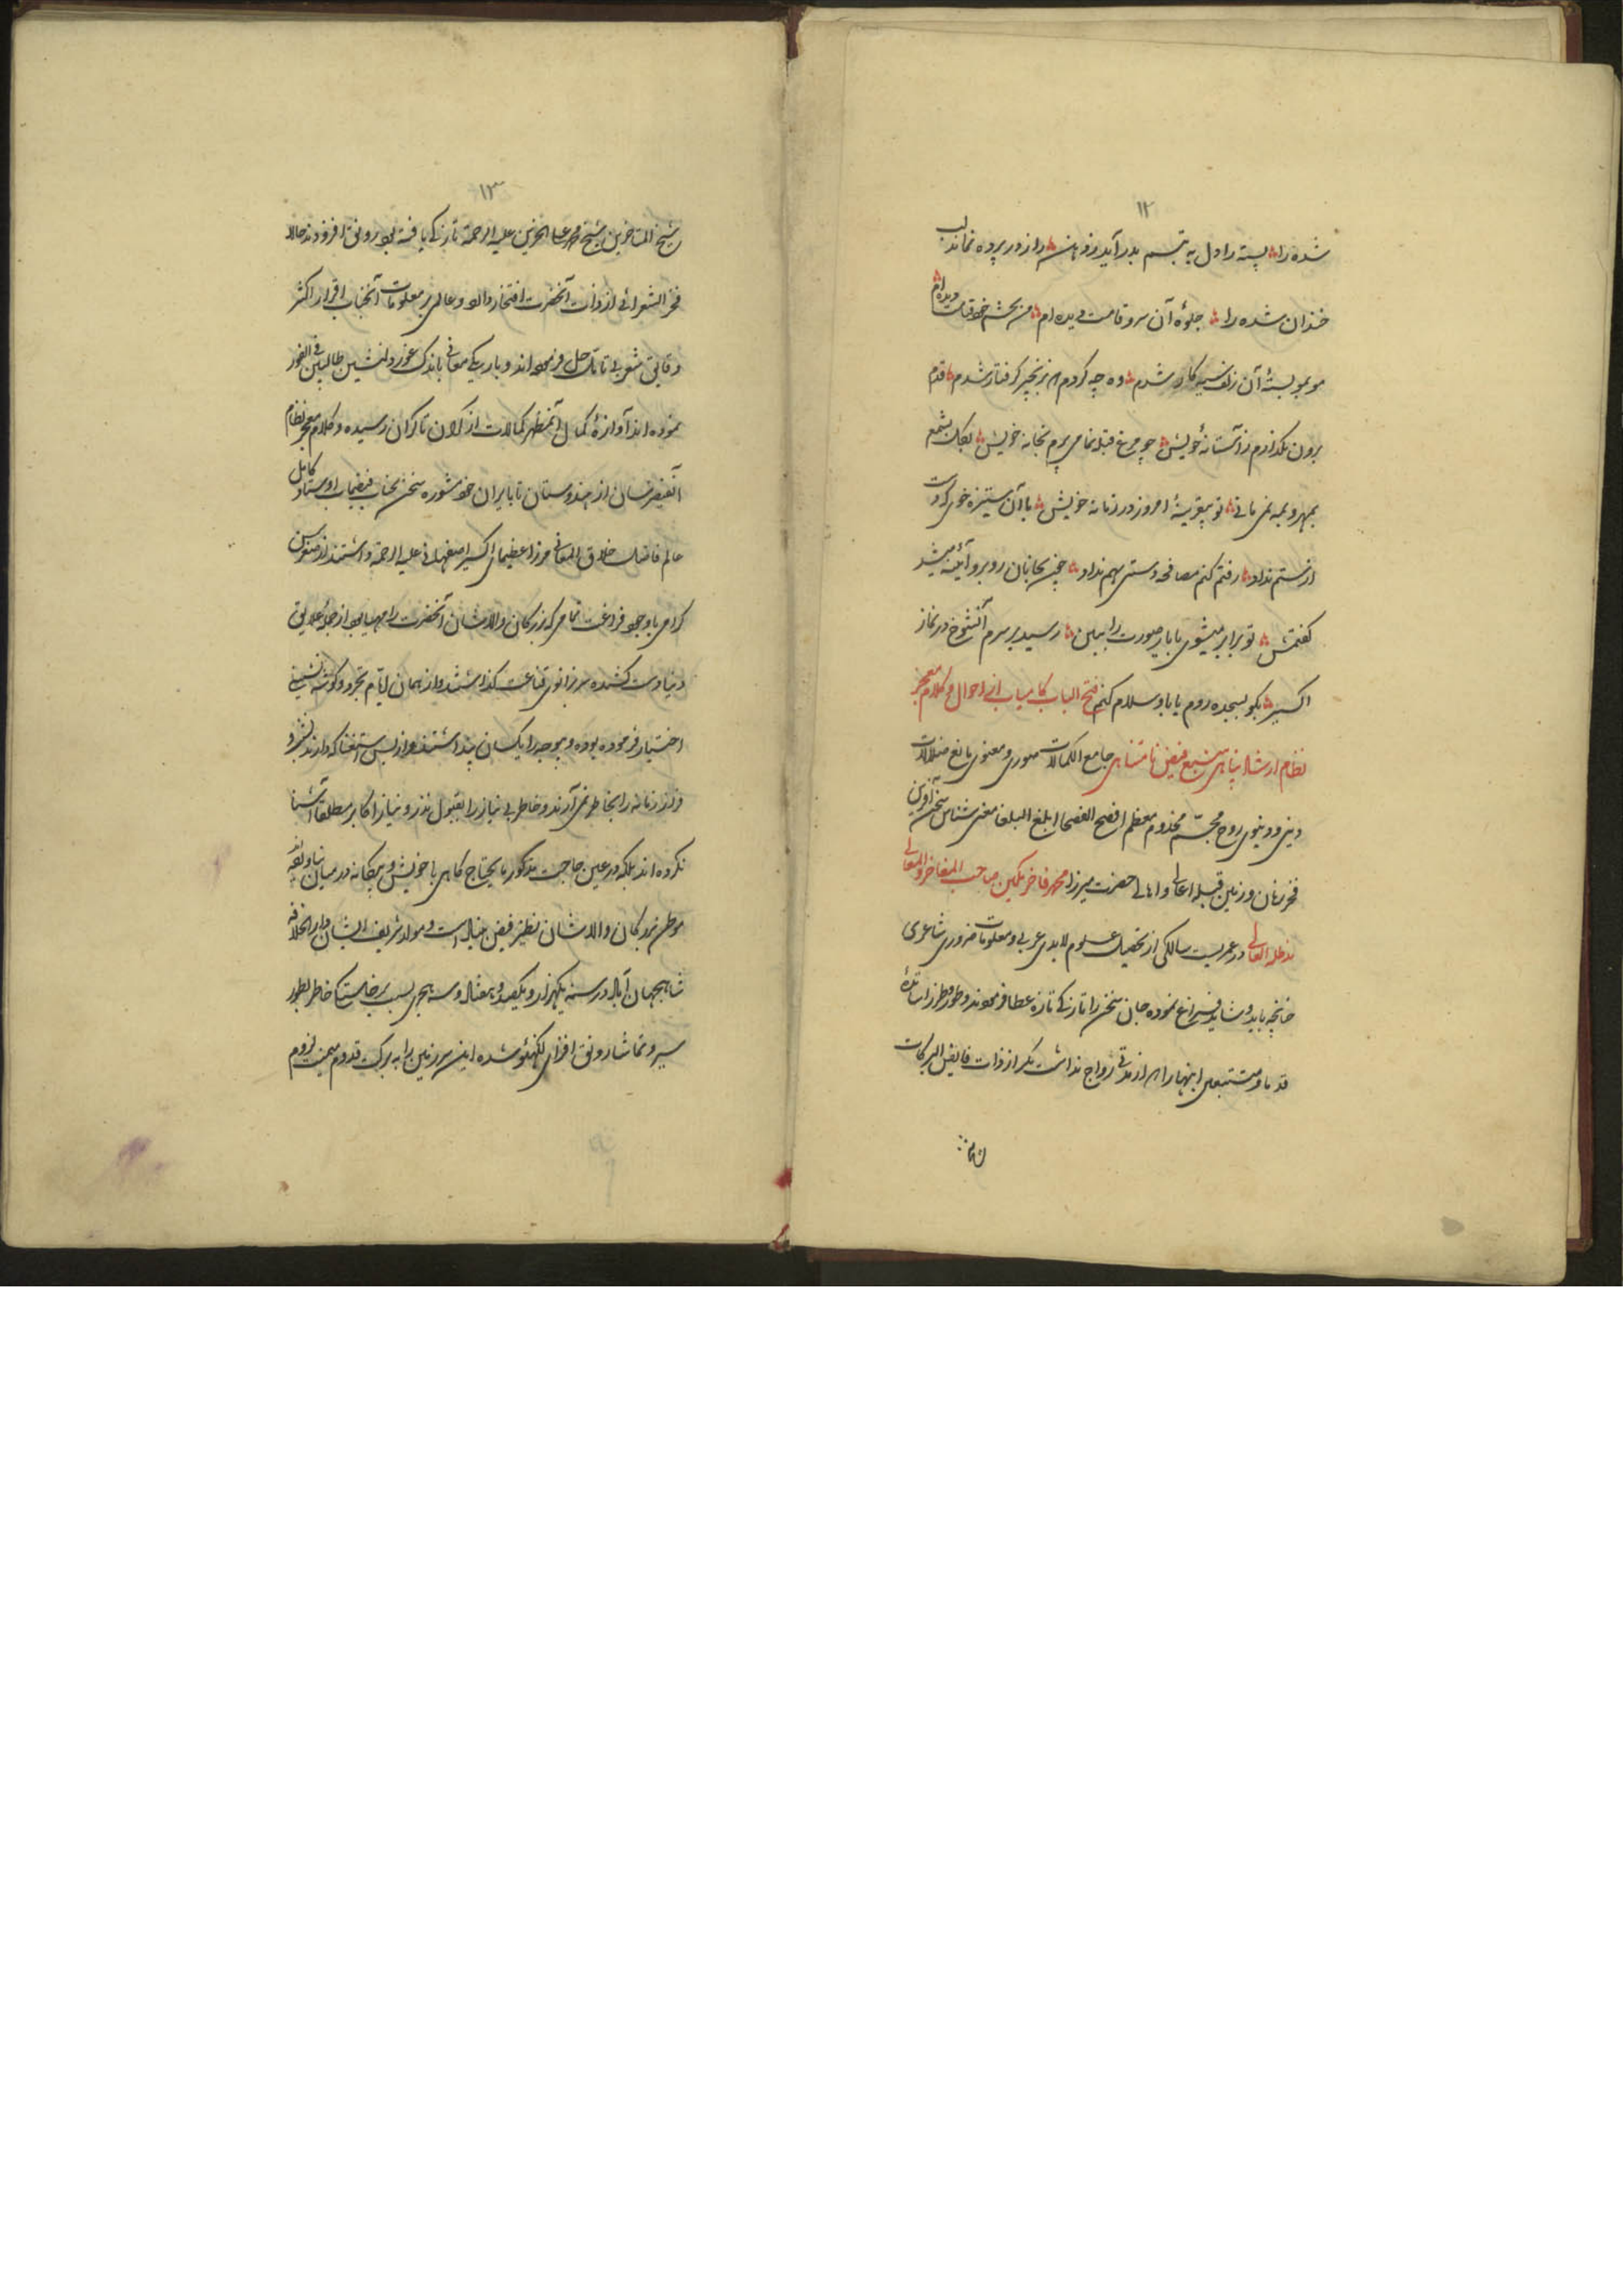 ۱۲
شده را پسته را دل به تبسم بدر آید ز دهانش راز در پرده نماند لب
خندان شده را جلوهٔ آن سرو قامت دیده‌ام من بچشم خود قیامت دیده‌ام
مو بمو بستهٔ آن زلف سیه کار شدم وه چه کردم که بزنجیر گرفتار شدم قدم
برون نگذارم ز آستانهٔ خویش چو مرغ قبله‌نما می‌پرم بخانهٔ خویش
بمهر و مه نمی‌مانی تو بیقرینهٔ امروز در زمانهٔ خویش با آن ستیزه خوی که دست
از ستم نداد رفتم کنم مصافحه دستی بهم نداد روبرو آئینه میشد
گفتمش تو برابر میشوی با یار صورت را ببین رسید بر سرم آن شوخ در نماز
اکسیر بگو بسجده روم یا باو سلام کنم فتح الباب کامیاب از احوال و کلام معجز
نظام ارشاد پناهی منبع فیض نامتناهی جامع الکمالات صوری و معنوی مانع ضلالات
دینی و دنیوی روح مجسم مخدوم معظم افصح الفصحا ابلغ البلغا معنی شناس سخن آفرین
فخر زمان و زمین قبله اعالی و اهالی حضرت میرزا محمد فاخر مکین صاحب المفاخر و المعالی
مدظله العالی در عمر بیست سالگی از تحصیل علوم لابدی عربی و معلومات ضروری شاعری
چنانچه باید و شاید فراغ نموده جان سخن را تازگی تازه عطا فرمودند و طور و طرز اساتذهٔ
قدما و متتبعی اینها را که از مدتی رواج نداشت مگر از ذات فایض البرکات
۱۳
شیخ المتاخرین شیخ محمد علی الحزین علیه الرحمه تازگی یافته بود رونق افزودند حالا
فخر الشعرائی از ذات آنحضرت افتخار دارد و عالمی بر معلومات آنجناب اقرار اکثر
دقایق شعر بی تامل حل فرموده‌اند و باریکی معانی باندک غوری دلنشین طالبین فی الفور
نموده‌اند آوازهٔ کمال آنمظهر کمالات از کران تا کران رسیده و کلام معجز نظام
از هندوستان تا بایران خود مشوره سخن بجناب فیضیاب اوستاد کامل
عالم فاضل خلاق المعانی مرزا عظیمای اکسیر اصفهانی علیه الرحمة داشتند از
گرامی باوجود فراغت تمامی که بزرگان والاشان آنحضرت را مهیا بود از جمله علایق
دنیا دست کشیده سر بزانوی قناعت گذاشتند و از همان ایام تجرد و گوشه نشینی
اختیار فرموده بوده و بوجود را یکسان پنداشتند و از بس استغنا که دارند
زمانه را بخاطر نمی‌آرند و خاطر بی نیاز را بقبول نذر و نیاز اکابر مطلقا آشنا
نکرده‌اند بلکه در عین حاجت مذکور مایحتاج گاهی با خویش و بیگانه در میان
موطن بزرگان والاشان خطهٔ فیض بنیاد است و مولد شریف ایشان دار الخلافه
شاهجهان آباد در سنه یکهزار و یکصد و هفتاد و سه هجری بسبب برخاستگی خاطر بطور
سیر و تماشا رونق افزای لکهنؤ شده این سرزمین را به برکت قدوم میمنت لزوم